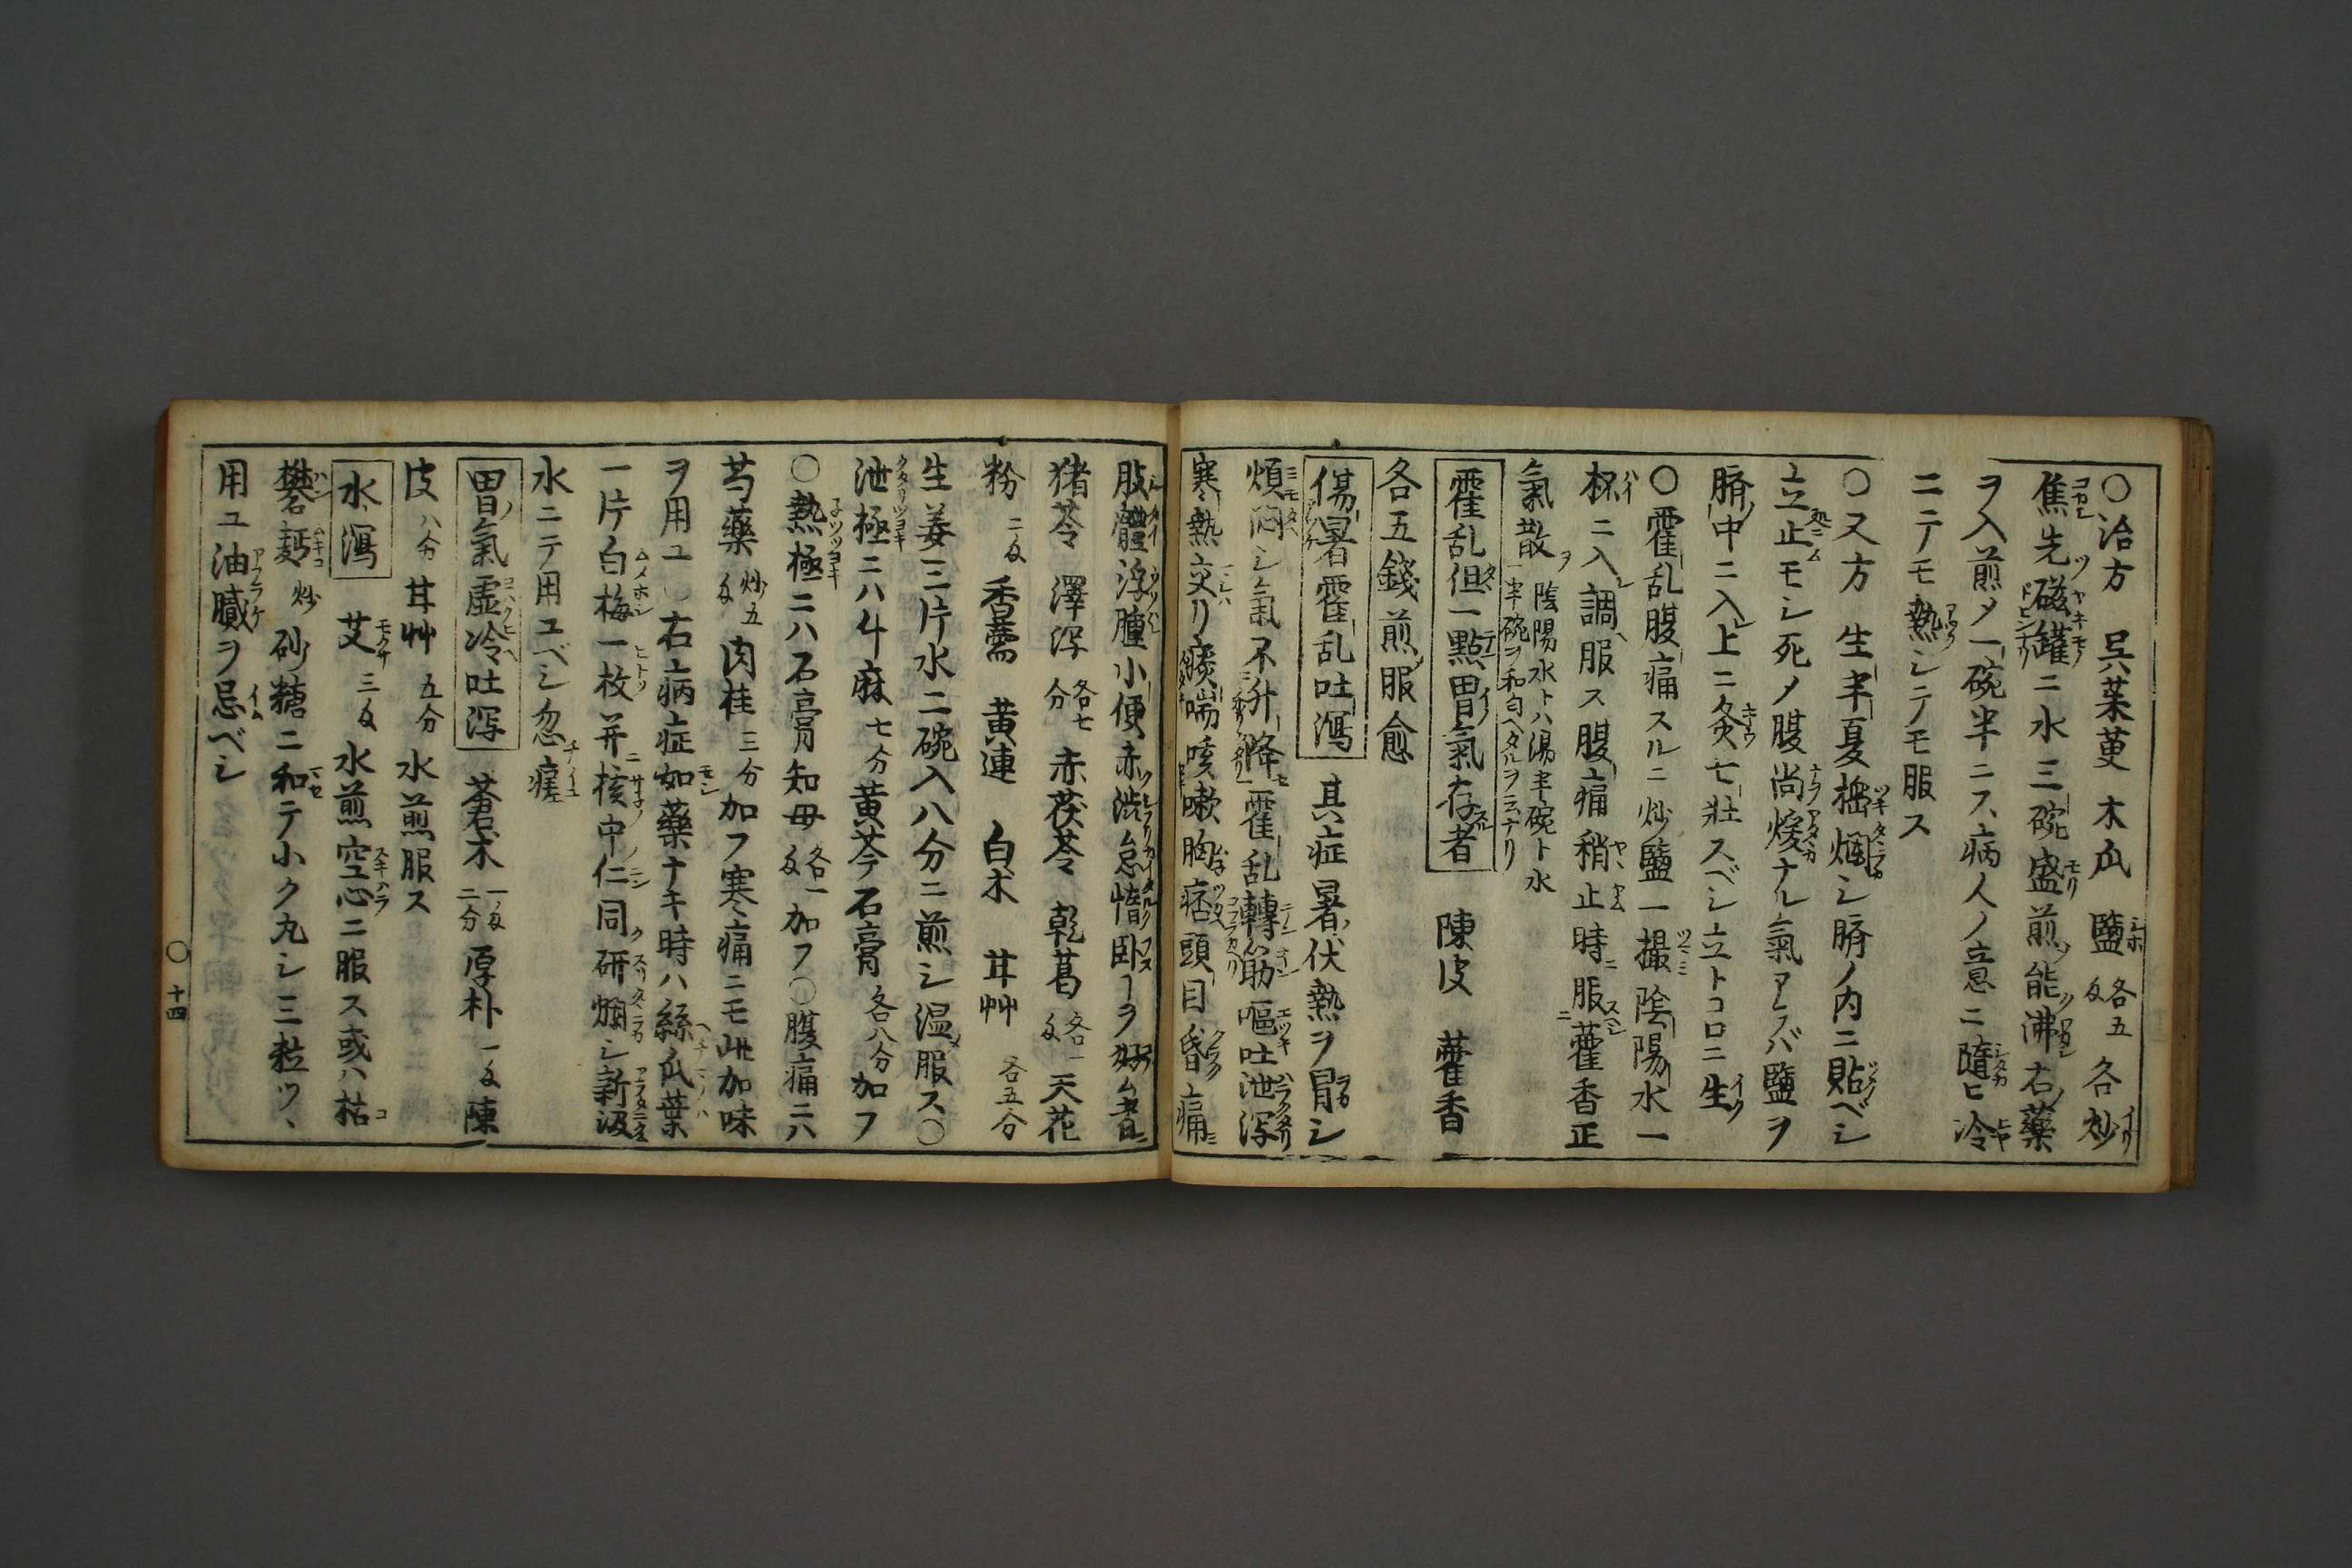 ○治方　呉茱萸　木瓜　鹽各五匁各炒
焦先磁罐ニ水三碗盛煎能沸右ノ藥
ヲ入煎〆一碗半ニス病人ノ意ニ隨ヒ冷
ニテモ熱シテモ服ス
○又方　生半夏搗爛シ臍ノ内ニ貼ベシ
立止モシ死ノ腹尚煖ナル氣アラバ鹽ヲ
臍ノ中ニ入上ニ灸七壯スベシ立トコロニ生
○霍乱腹痛スルニ炒鹽一撮陰陽水一
杯ニ入調服ス腹痛稍止時服藿香正
氣散　陰陽水トハ湯半碗ト水
一半碗ヲ和匀ヘタルヲ云ナリ
霍乱但一點胃氣存者　陳皮　藿香
各五錢煎服愈
傷暑霍乱吐瀉　其症暑伏熱ヲ冒シ
煩悶シ氣不升降霍乱轉筋嘔吐泄瀉
寒熱交リ痰喘咳嗽胸痞頭目昏痛
肢體浮腫小便赤澁怠惰臥ヿヲ好者ニ
猪苓　澤瀉各七分　赤茯苓　乾葛各一匁　天花
粉二匁　香薷　黄連　白朮　甘艸各五分
生姜三片水二碗入八分ニ煎シ温服ス○
泄極ニハ升麻七分黄芩石膏各八分加フ
○熱極ニハ石膏知母各一匁加フ○腹痛ニハ
芍藥炒五匁肉桂三分加フ寒痛ニモ此加味
ヲ用ユ○右病症如藥ナキ時ハ絲瓜葉
一片白梅一枚并核中仁同研爛シ新汲
水ニテ用ユベシ忽瘥
胃氣虚冷吐瀉　蒼朮一匁二分厚朴一匁陳
皮八分甘艸五分水煎服ス
水瀉　艾三匁水煎空心ニ服ス或ハ枯
礬麪炒砂糖ニ和テ小ク丸シ三粒ツヽ
用ユ油膩ヲ忌ベシ
○十四